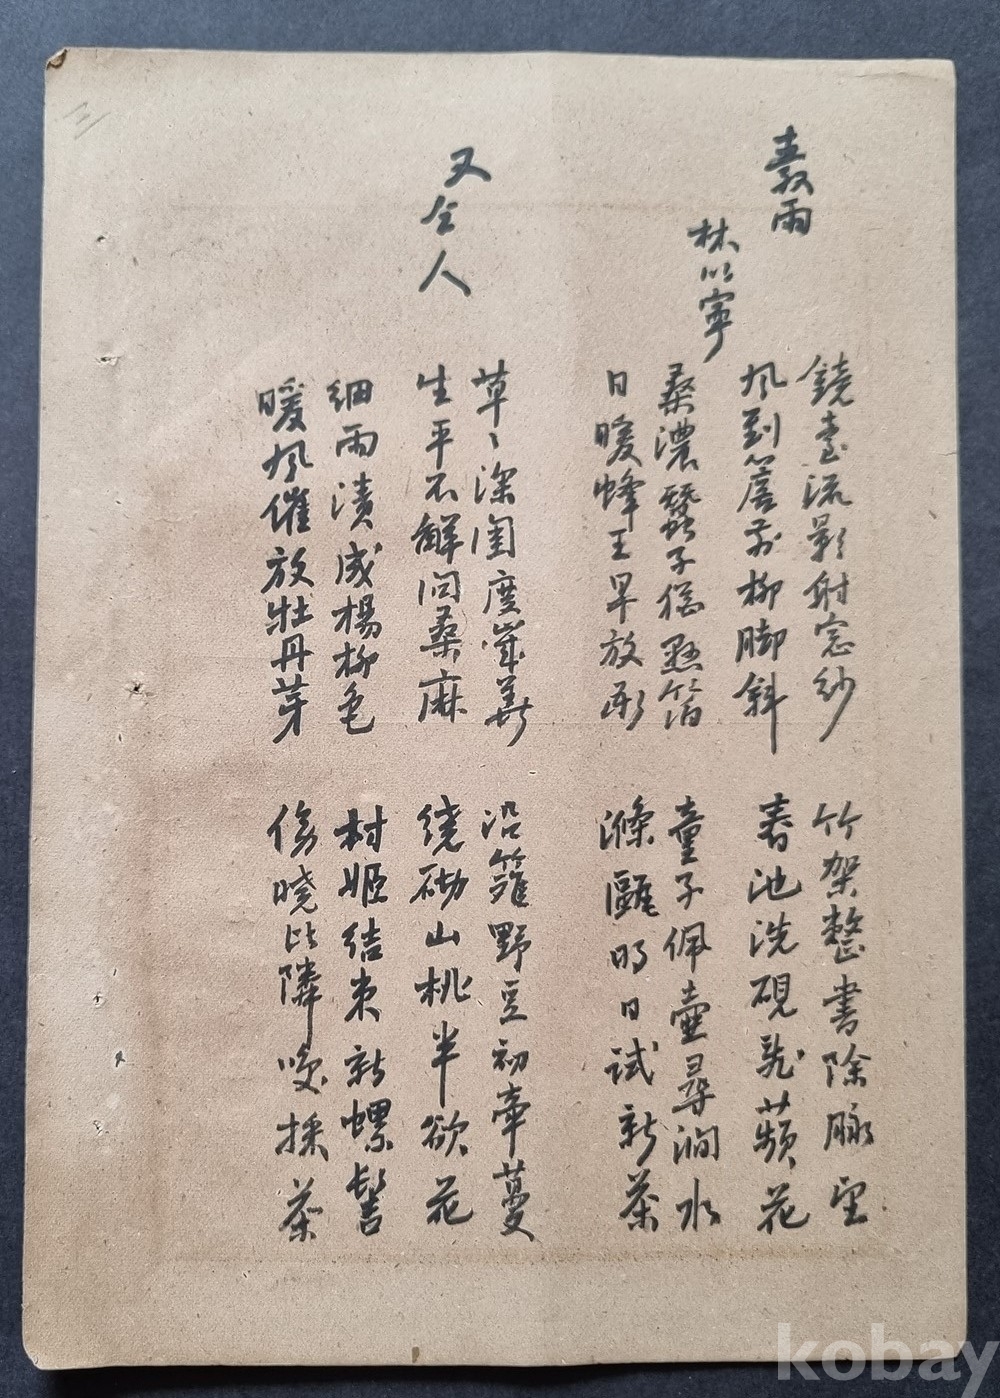 三
穀雨
林以寧
鏡臺流影射窓紗
風到簷前柳脚斜
桑濃蠶子點箔
日暖蜂王早放衙
竹架整書除脉望
春池洗硯亂蘋花
童子佩壷尋澗水
滌甌明日試新茶
又仝人
草〻深閨度歲華
生平不解問桑麻
細雨漬成楊柳色
暖風催放牡丹芽
沿籬野豆初牽蔓
繞砌山桃半欲花
村姬結束新螺髻
傍曉比隣喚採茶
kobay